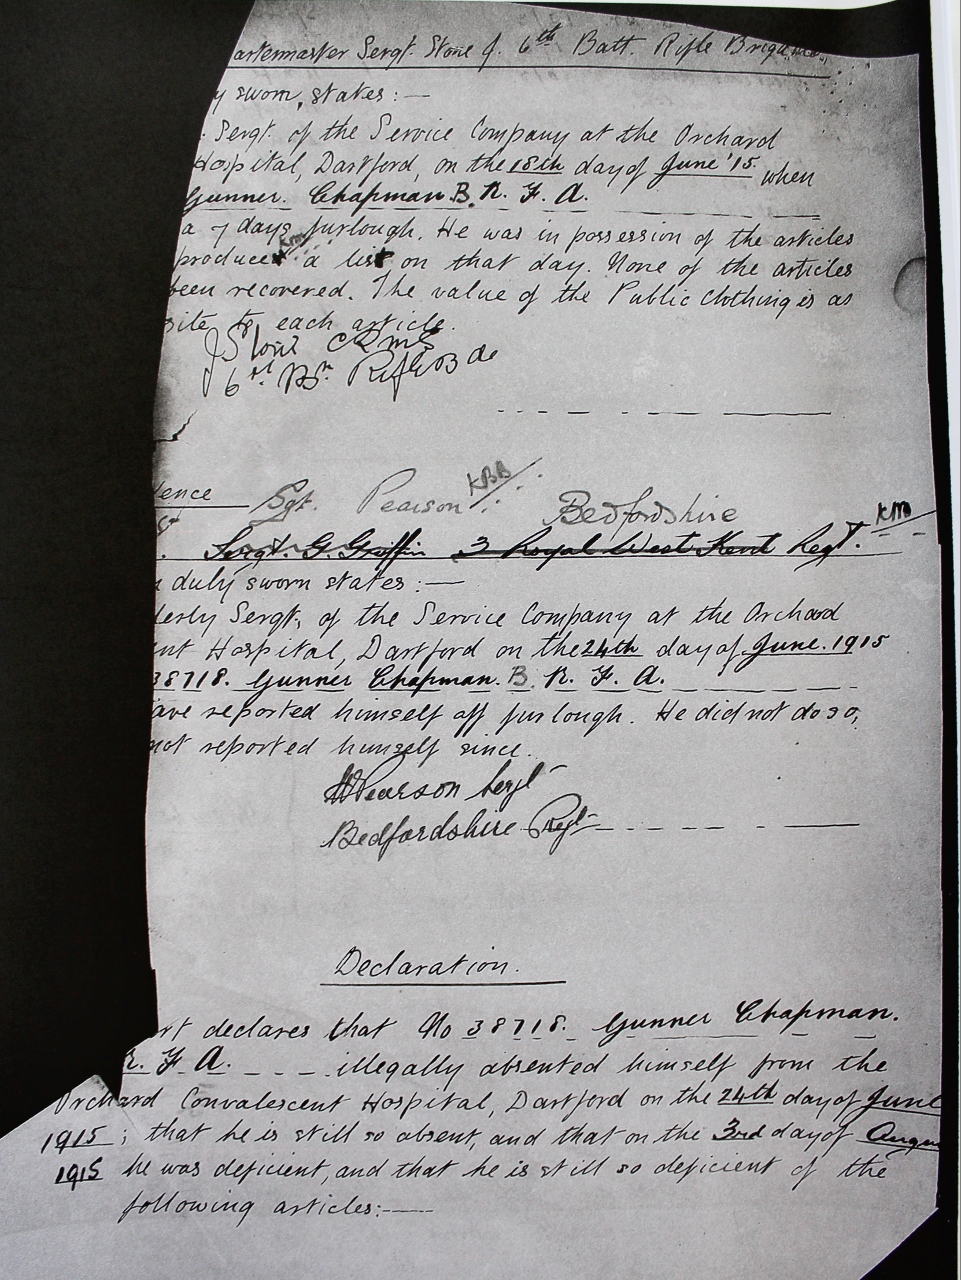 artermaster Sergt. Stone J. 6th Batt. Rifle Brigade.
y sworn, states: —
. Sergt. of the Service Company at the Orchard
Hospital, Dartford, on the 18th day of June '15. when
Gunner. Chapman. B. R. F. A.
a 7 days furlough. He was in possession of the articles
produce a list on that day. None of the articles
been recovered. The value of the Public Clothing is as
site to each article.
J Stone CQMS
6th Bn Rifle Bde
dence Sgt. Pearson Bedfordshire
. Sergt. G. Griffin 3 Royal West Kent Regt.
duly sworn states: —
derly Sergt, of the Service Company at the Orchard
ent Hospital, Dartford on the 24th day of June. 1915
38718. Gunner Chapman. B. R. F. A.
ave reported himself off furlough. He did not do so,
not reported himself since.
Pearson Sergt
Bedfordshire Regt
Declaration.
rt declares that No 38718. Gunner Chapman.
R. F. A. illegally absented himself from the
Orchard Convalescent Hospital, Dartford on the 24th day of June
1915; that he is still so absent, and that on the 3rd day of Augu
1915 he was deficient, and that he is still so deficient of the
following articles: —